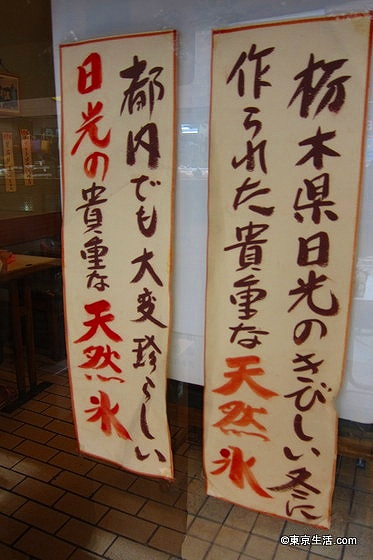 栃木県日光のきびしい冬に
作られた貴重な天然氷
都内でも大変珍らしい
日光の貴重な天然氷
©東京生活.com